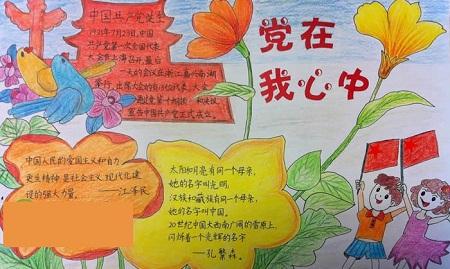 党在
我心中
中国共产党诞生
1921年7月23日,中国
共产党第一次全国代表
大会在上海召开,最后
一天的会议在浙江嘉兴南湖
举行,出席大会的有13位代表,大会
宣告中国共产党正式成立。
中国人民的爱国主义和自力
更生精神是社会主义现代化建
设的强大力量。——江泽民
太阳和月亮有同一个母亲,
她的名字叫光明,
汉族和藏族有同一个母亲,
她的名字叫中国。
20世纪中国大西南广阔的雪原上,
闪烁着一个光辉的名字
——孔繁森。